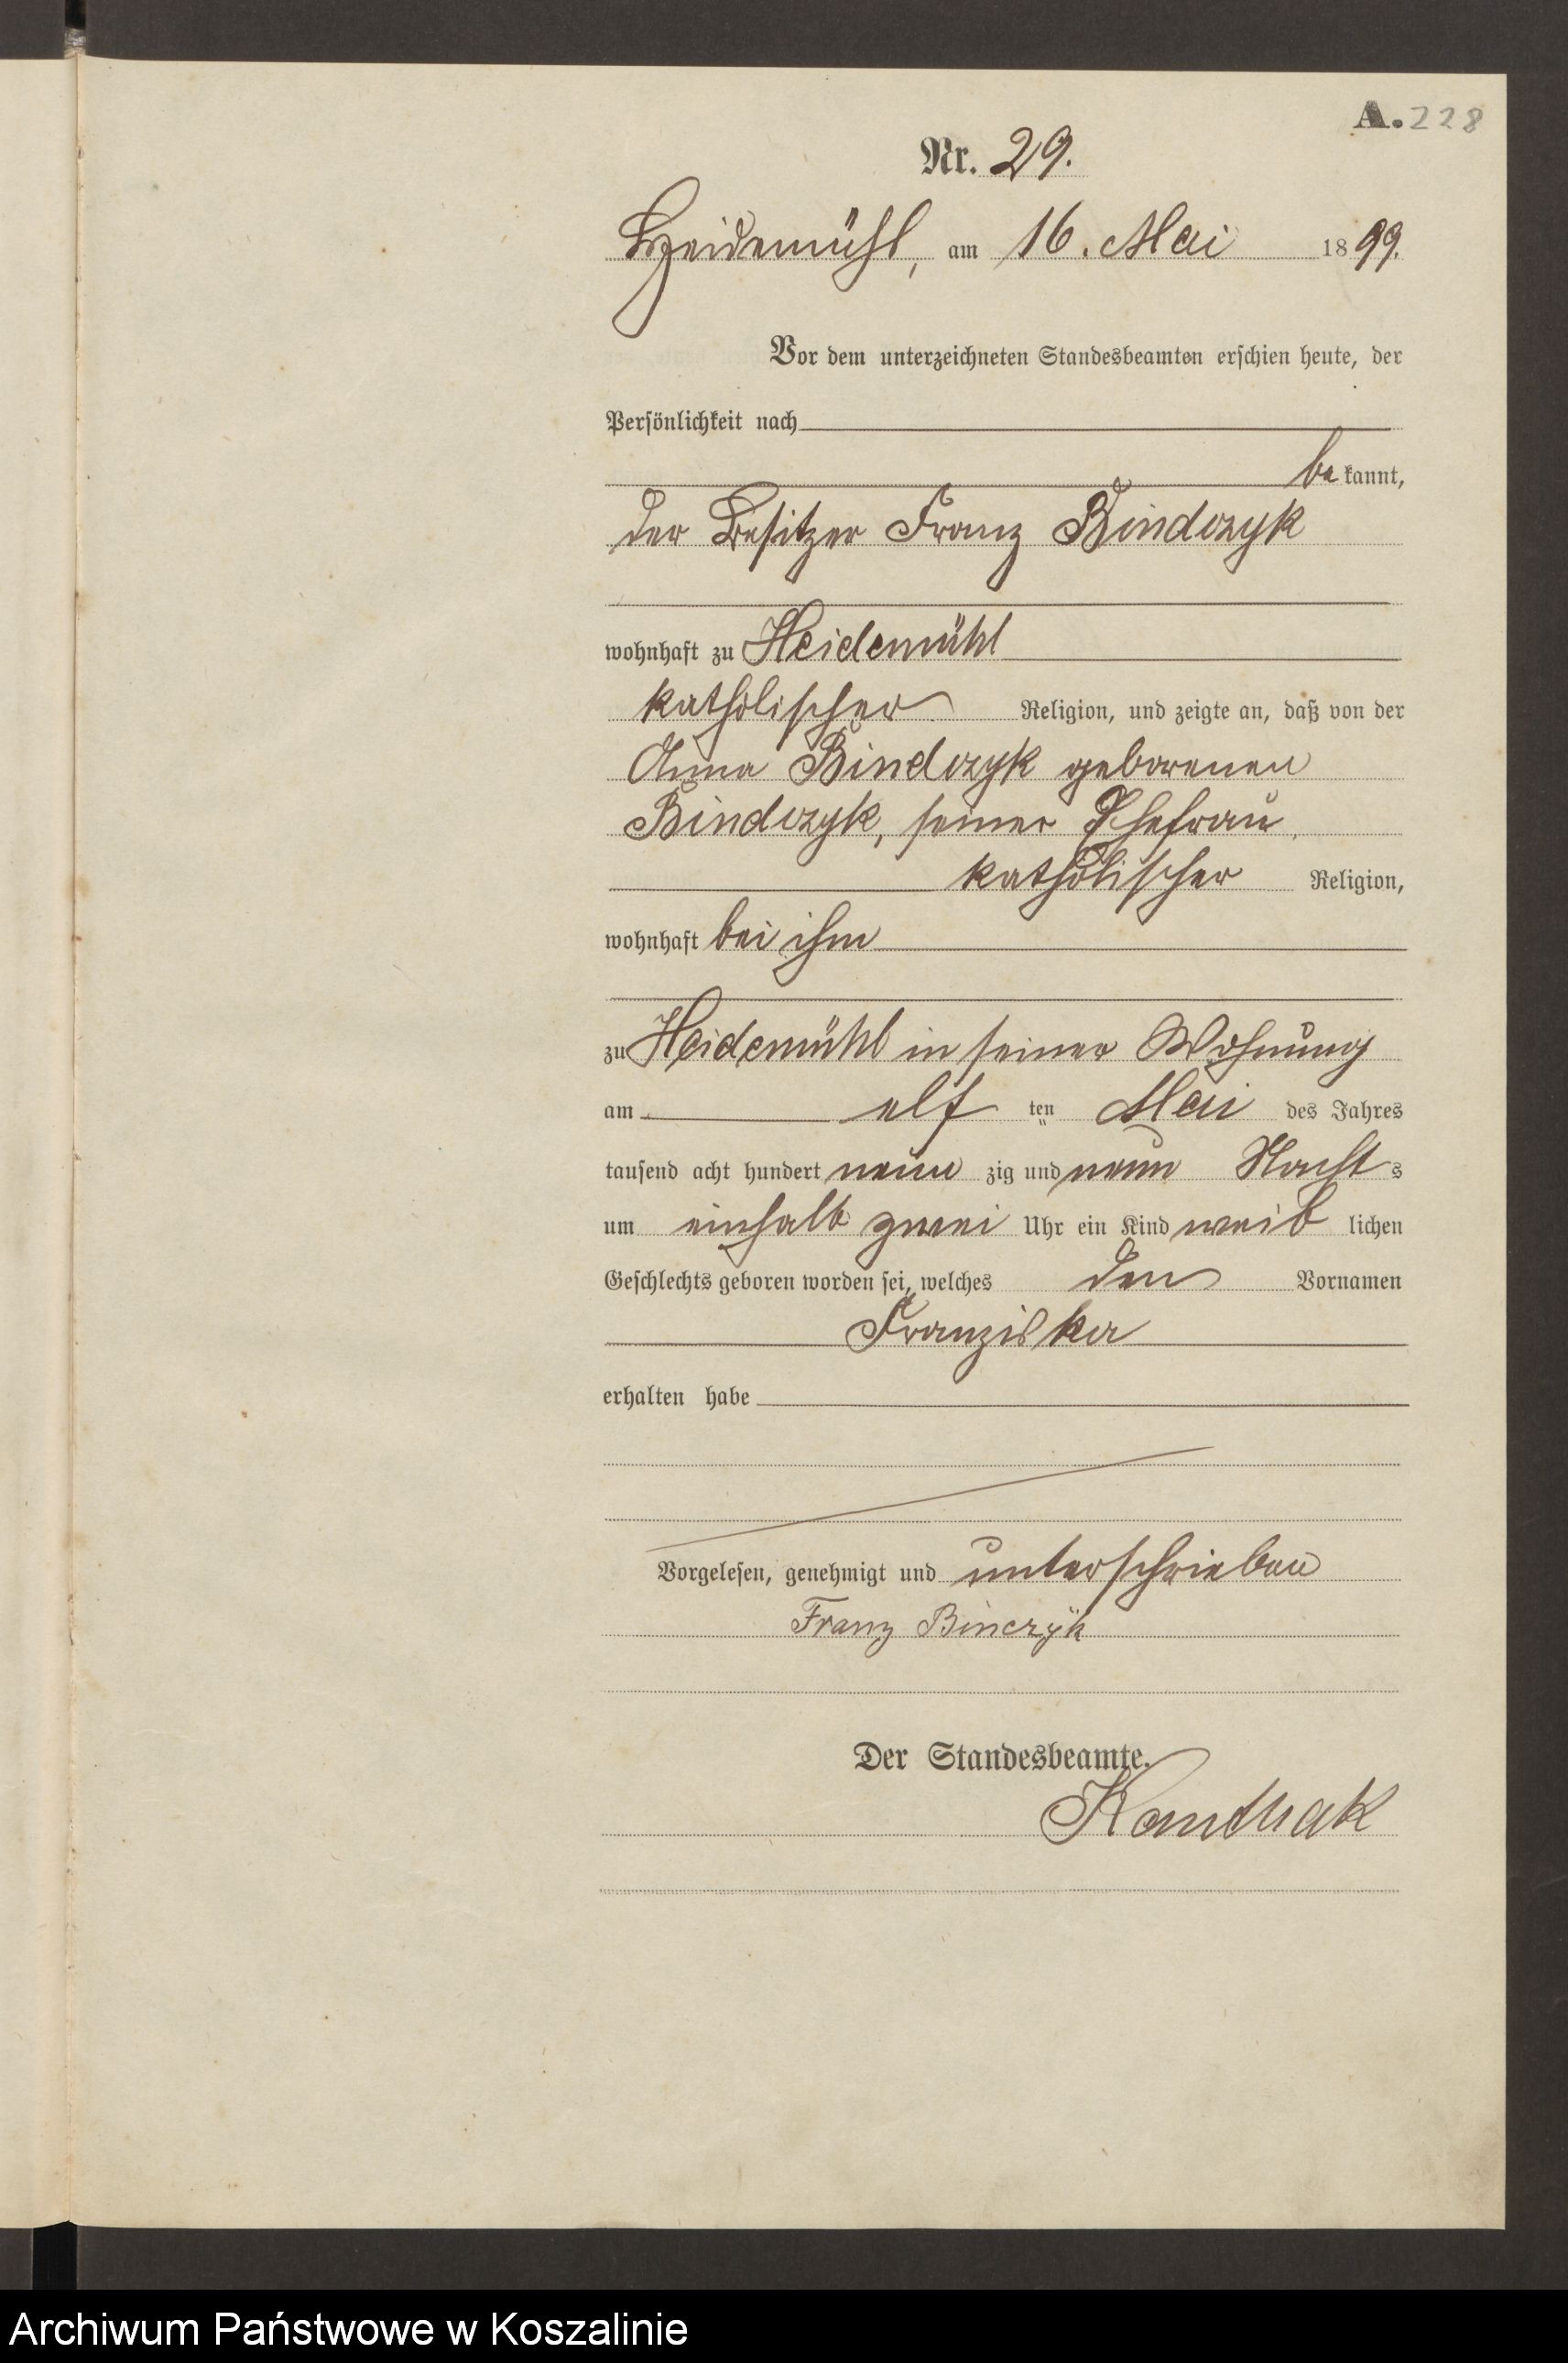 A. 228
Nr. 29.
Heidemühl, am 16. Mai 1899.
Vor dem unterzeichneten Standesbeamten erschien heute, der
Persönlichkeit nach
bekannt,
der Besitzer Franz Bindczyk
wohnhaft zu Heidemühl
katholischer Religion, und zeigte an, daß von der
Anna Bindczyk geborenen
Bindczyk, seiner Ehefrau,
katholischer Religion,
wohnhaft bei ihm
zu Heidemühl in seiner Wohnung
am elf ten Mai des Jahres
tausend acht hundert neunzig und neun Nachts
um einhalb zwei Uhr ein Kind weiblichen
Geschlechts geboren worden sei, welches den Vornamen
Franziska
erhalten habe
Vorgelesen, genehmigt und unterschrieben
Franz Binczÿk
Der Standesbeamte.
Kanthak
Archiwum Państwowe w Koszalinie